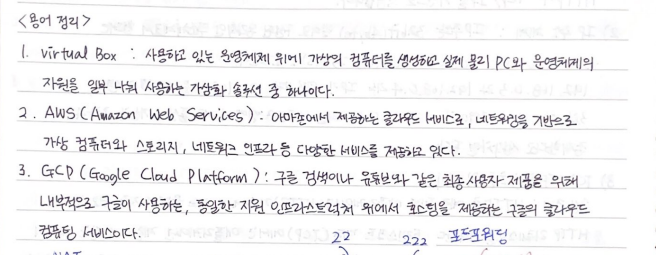 <용어 정리>
1. virtual Box : 사용하고 있는 운영체제 위에 가상의 컴퓨터를 생성하고 실제 물리 PC와 운영체제의
자원을 일부 나눠 사용하는 가상화 솔루션 중 하나이다.
2. AWS (Amazon Web Services) : 아마존에서 제공하는 클라우드 서비스로, 네트워킹을 기반으로
가상 컴퓨터와 스토리지, 네트워크 인프라 등 다양한 서비스를 제공하고 있다.
3. GCP (Google Cloud Platform) : 구글 검색이나 유튜브와 같은 최종 사용자 제품을 위해
내부적으로 구글이 사용하는, 동일한 지원 인프라스트럭처 위에서 호스팅을 제공하는 구글의 클라우드
컴퓨팅 서비스이다.
22 222 포트포워딩